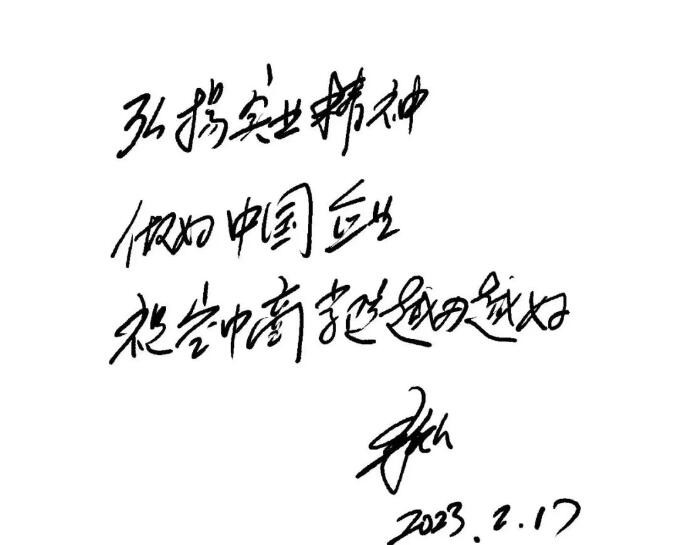 弘扬实业精神
做好中国企业
祝空中商学院越办越好
2023.2.17